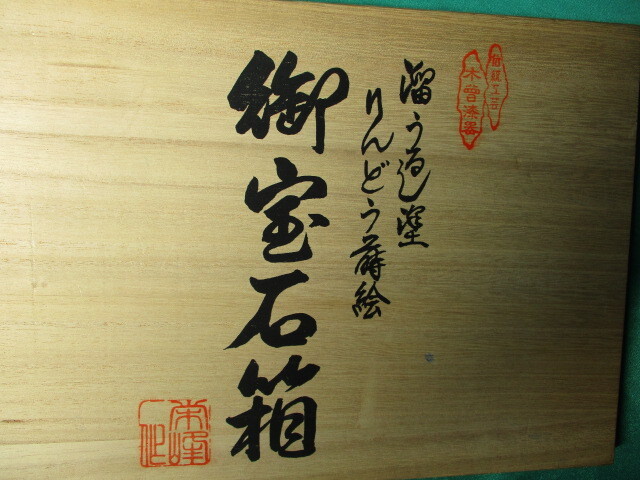 伝統工芸
木曽漆器
溜うるし塗
りんどう蒔絵
御宝石箱